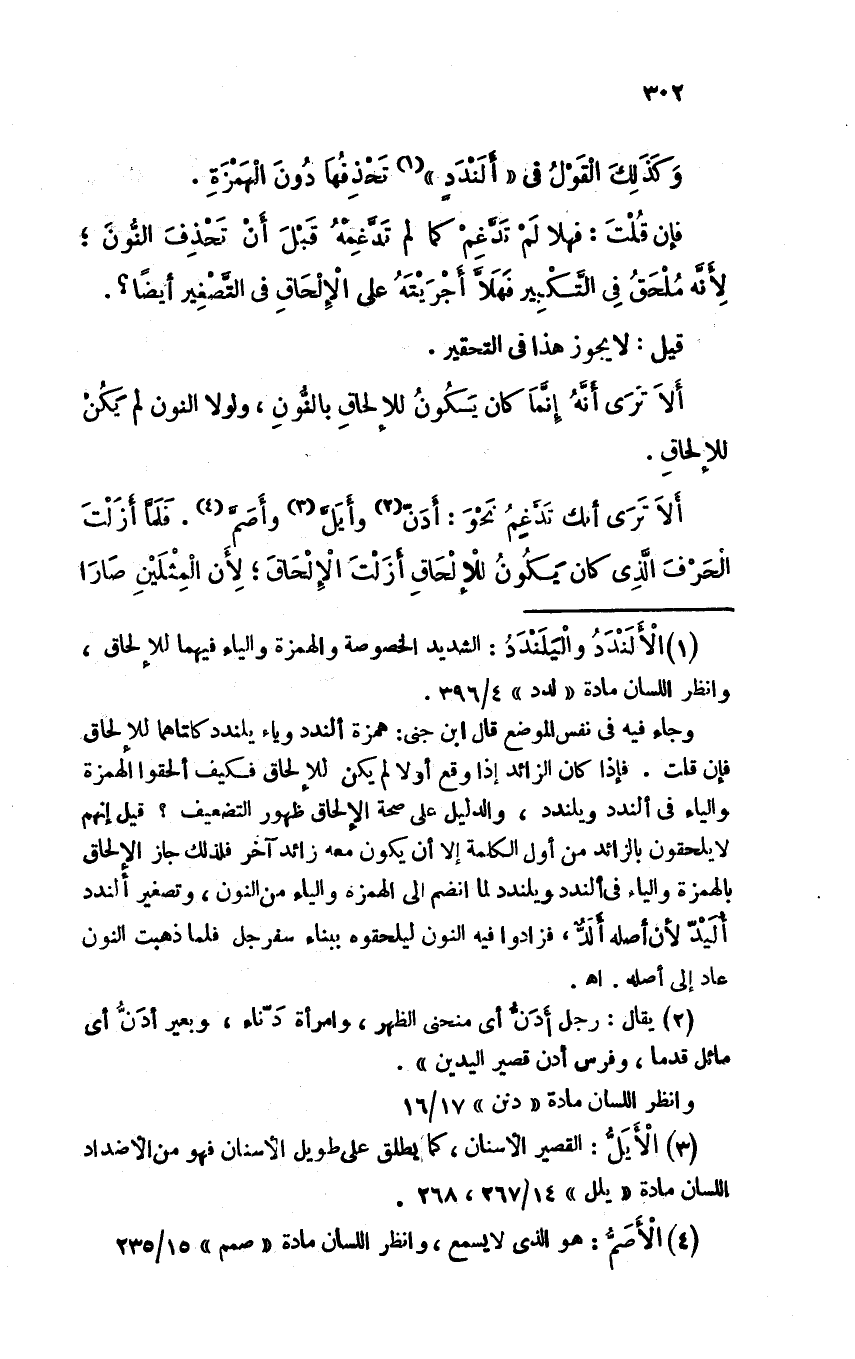 ٣٠٢
وَكَذَلِكَ الْقَوْلُ فى « أَلَنْدَدٍ »(١) تَحْذِفُهَا دُونَ الْهَمْزَةِ .
فإن قُلْتَ : فهلا لَمْ تَدَّغِمْ كما لم تَدَّغِمْهُ قَبْلَ أَنْ تَحْذِفَ النُّونَ ؛
لِأَنَّه مُلْحَقُ فِى التَّكْبِيرِ فَهَلاَّ أَجْرَيْتَهُ على الْإِلْحَاقِ فى التَّصْغِيرِ أيضًا ؟ .
قيل : لا يجوز هذا فى التحقير .
أَلاَ تَرَى أَنَّهُ إِنَّمَا كان يَكُونُ للإلحاقِ بالنُّونِ ، ولولا النون لم يَكُنْ
للإلحاقِ .
أَلاَ تَرَى أنك تَدَّغِمُ نَحْوَ : أَدَنّ(٢) وأَيَلَّ(٣) وأَصَمَّ(٤) . فَلَمَّا أَزَلْتَ
الْحَرْفَ الَّذِى كان يَكُونُ لْلإِلْحَاقِ أَزَلْتَ الْإِلْحَاقَ ؛ لِأَن الْمِثْلَيْنِ صَارَا
(١) الْأَلَنْدَدُ والْيَلَنْدَدُ : الشديد الخصوصة والهمزة والياء فيهما للإلحاق ،
وانظر اللسان مادة « لدد » ٣٩٦/٤ .
وجاء فيه فى نفس الموضع قال ابن جنى: همزة ألندد وياء يلندد كلتاهما للإلحاق
فإن قلت . فإذا كان الزائد إذا وقع أولا لم يكن للإلحاق فكيف ألحقوا الهمزة
والياء فى ألندد ويلندد ، والدليل على صحة الإلحاق ظهور التضعيف ؟ قيل إنهم
لا يلحقون بالزائد من أول الكلمة إلا أن يكون معه زائد آخر فلذلك جاز الإلحاق
بالهمزة والياء فى ألندد ويلندد لما انضم الى الهمزه والياء من النون ، وتصغير ألندد
أُلَيْدّ لأن أصله أَلَدُّ ، فزادوا فيه النون ليلحقوه ببناء سفرجل فلما ذهبت النون
عاد إلى أصله . اه .
(٢) يقال : رجل أَدَنُّ أى منحنى الظهر ، وامرأة دَنّاء ، وبعير أدَنُّ أى
مائل قدما ، وفرس أدن قصير اليدين » .
وانظر اللسان مادة « دنن » ١٦/١٧
(٣) الْأَيَلُّ : القصير الأسنان ، كما يطلق على طويل الأسنان فهو من الأضداد
اللسان مادة « يلل » ٢٦٧/١٤ ، ٢٦٨ .
(٤) الْأَصَمُّ : هو الذى لايسمع ، وانظر اللسان مادة « صمم » ٢٣٥/١٥